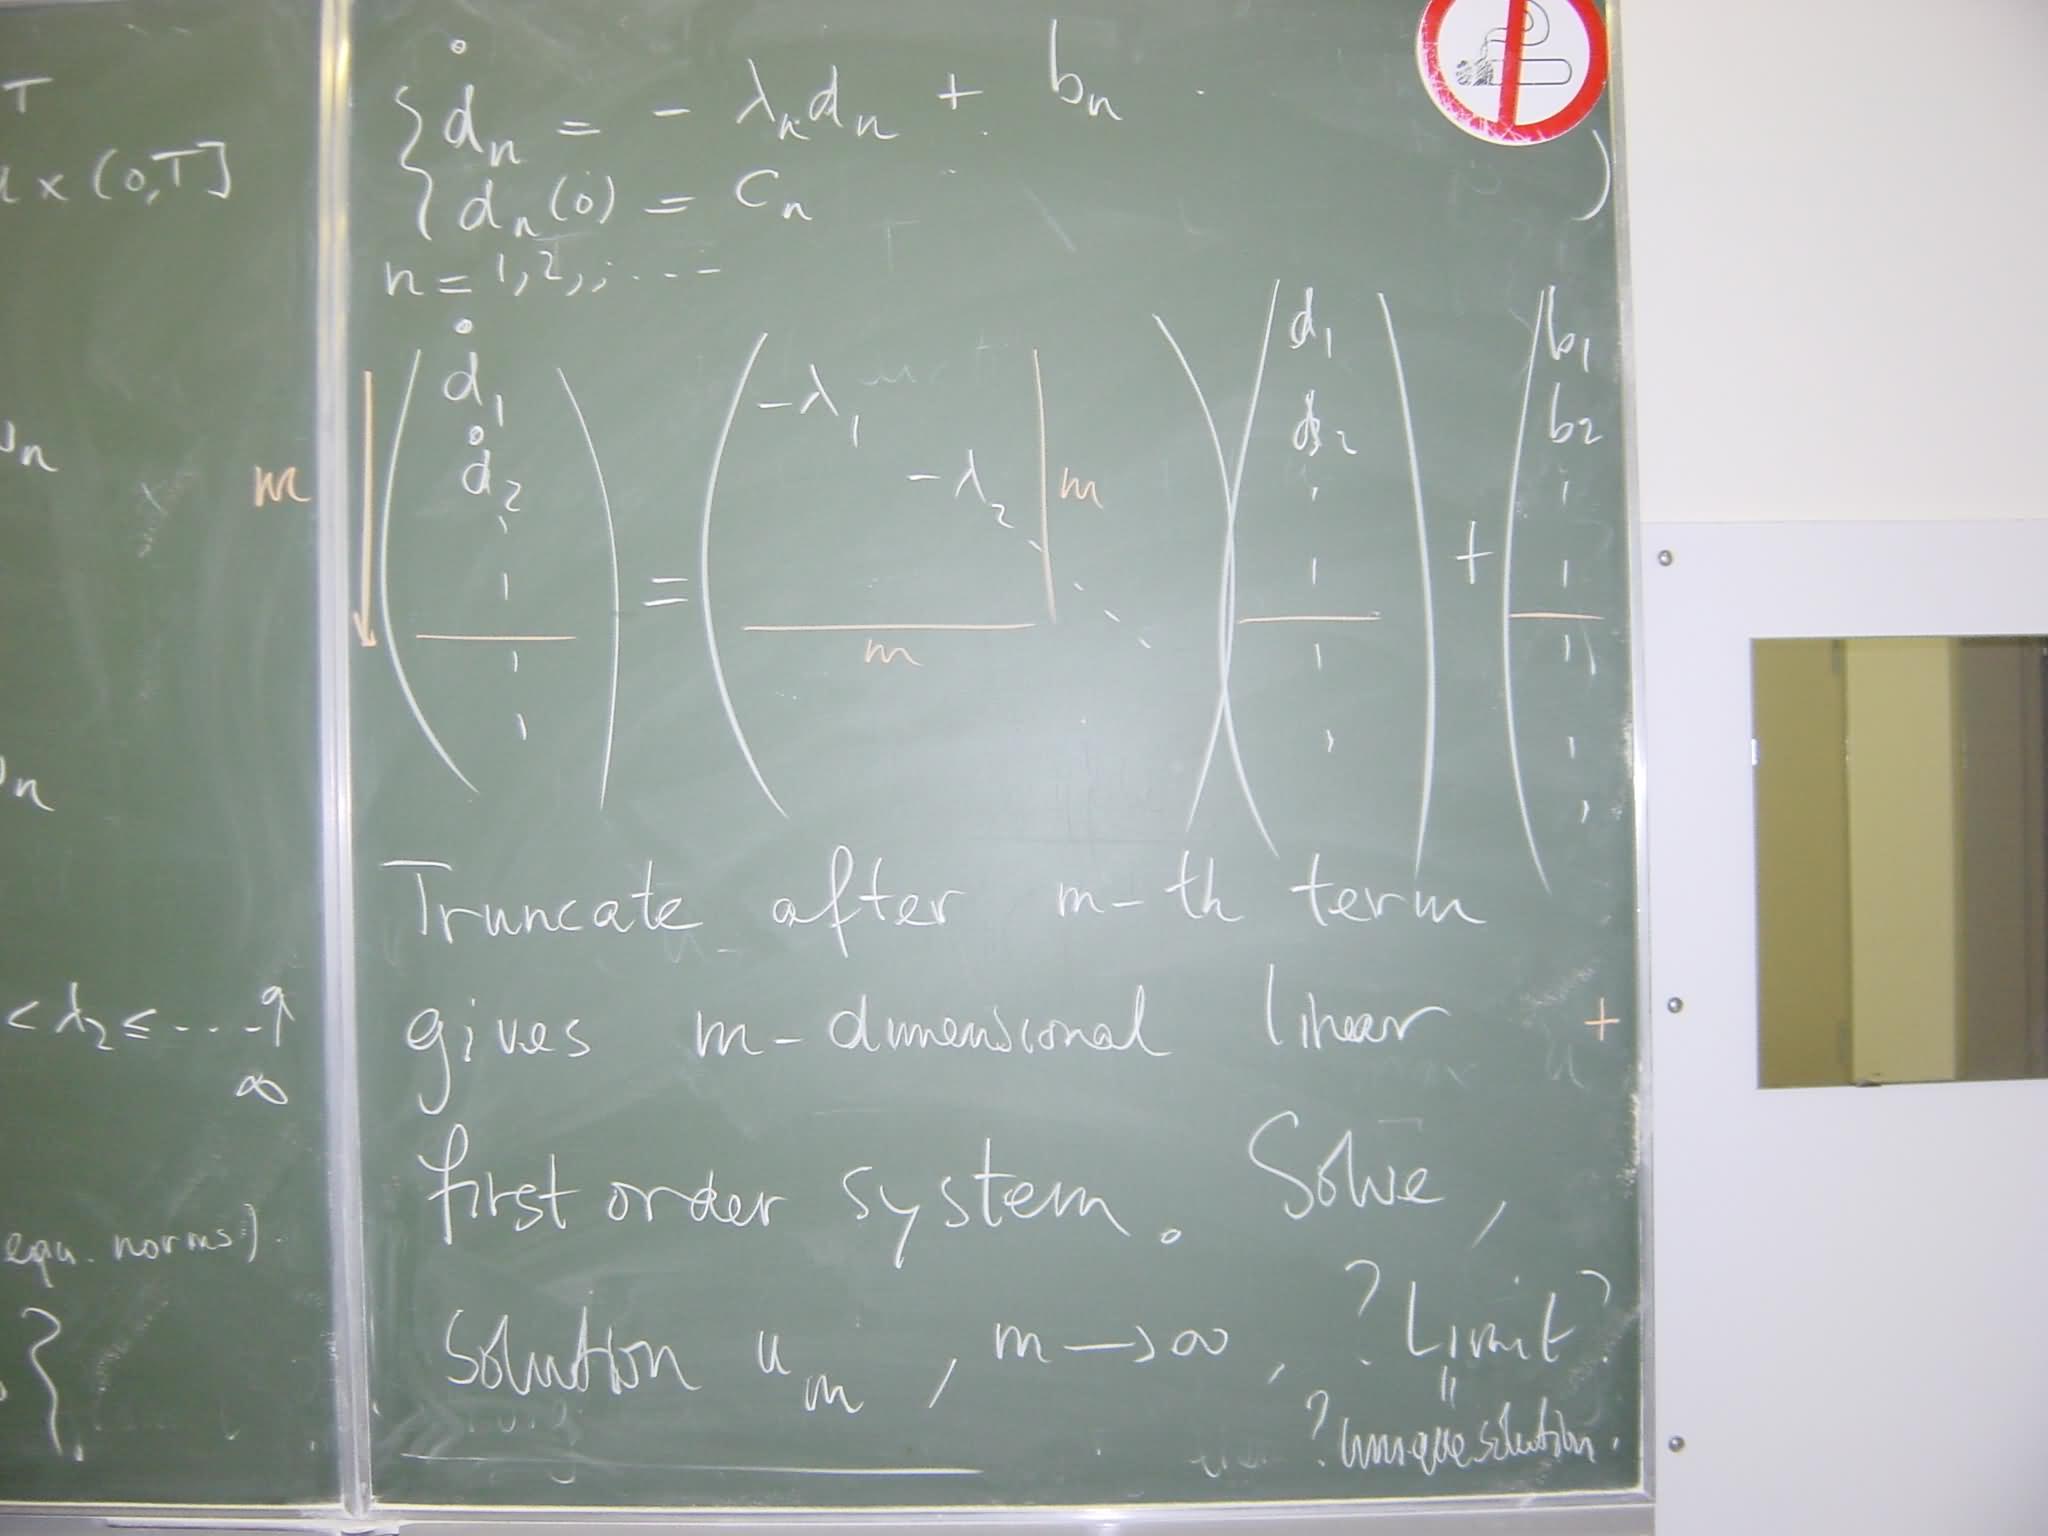 T
x (0,T]
n
n
< λ₂ ≤ ---- ↑
∞
equ. norms).
}.
{ ḋₙ = - λₙdₙ + bₙ
{ dₙ(0) = cₙ
n = 1,2,,....
m ↓ ( ḋ₁ ḋ₂ ) = ( -λ₁ -λ₂ ⋱ ) ( d₁ d₂ ) + ( b₁ b₂
m
m
Truncate after m-th term
gives m-dimensional linear +
first order system. Solve,
Solution uₘ, m → ∞, ? Limit?
"
? unique solution.